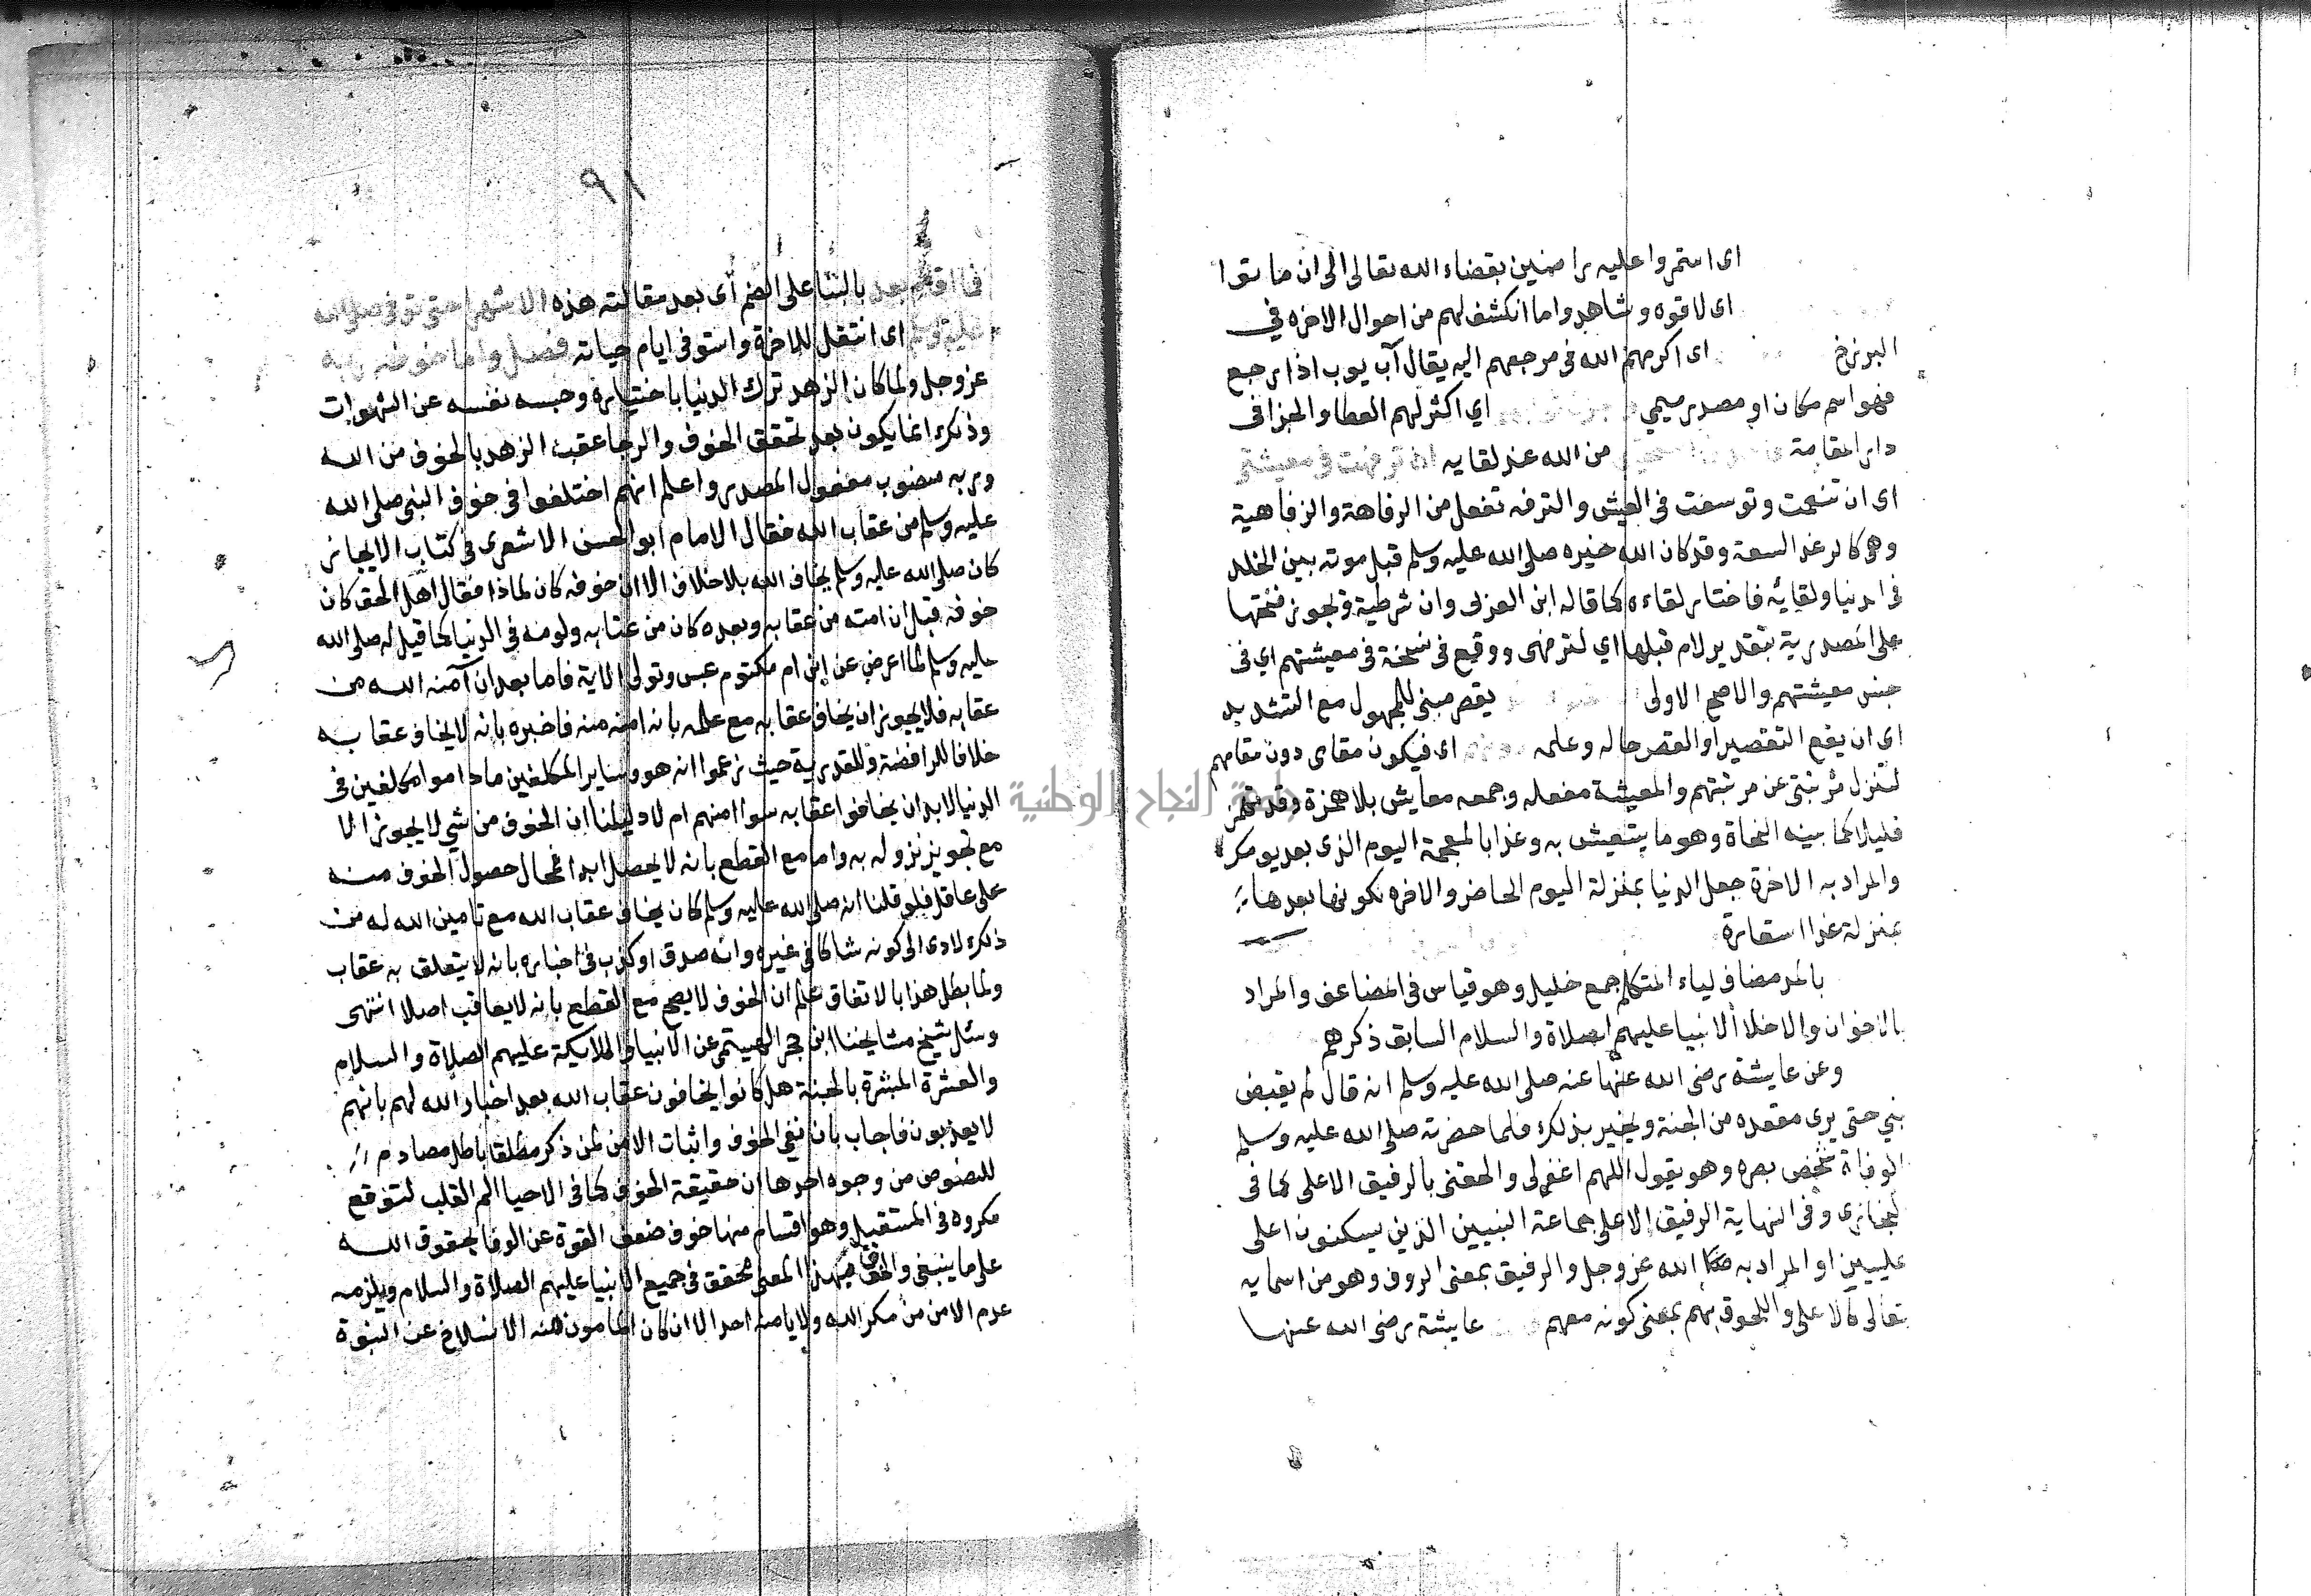 اى استمروا عليه راضين بقضاء الله تعالى الى ان ماتوا
اى لاقوه وشاهدوا ما انكشف لهم من احوال الاخره في
البرزخ اى اكرمهم الله فى مرجعهم اليه يقال آب يوب اذا رجع
فهو اسم مكان او مصدر ميمي اي اكثر لهم العطا والجزا فى
دار المقامة من الله عند لقايه ان ترفهت فى معيشتى
اى ان تنعمت وتوسعت فى العيش والترفه تفعل من الرفاهة والرفاهية
وهى كالرغد السعة وقد كان الله خيره صلى الله عليه وسلم قبل موته بين الخلد
فى الدنيا ولقايه فاختار لقاءه كما قاله ابن العربى وان شرطية وتجوز فتحها
على المصدرية بتقدير لام قبلها اي لترفهى ووقع فى نسخة فى معيشتهم اي فى
جنس معيشتهم والاصح الاولى يقصر مبنى للمجهول مع التشديد
اى ان يقع التقصير او القصر حاله وعلمه اى فيكون مقامى دون مقامهم
لتنزل مرتبتى عن مرتبتهم والمعيشة مفعله وجمعه معايش بلا همزة وقد تهمز
قليلا كما بينه النحاة وهو ما يتعيش به وغدا بالمعجمة اليوم الذى بعد يومك
والمراد به الاخرة جعل الدنيا بمنزلة اليوم الحاضر والاخره لكونها بعدها
بمنزلة غدا استعارة
بالمد مضاف لياء المتكلم جمع خليل وهو قياس فى المضاعف والمراد
بالاخوان والاخلا الانبيا عليهم الصلاة والسلام السابق ذكرهم
وعن عايشة رضى الله عنها عنه صلى الله عليه وسلم انه قال لم يقبض
نبي حتى يرى مقعده من الجنة ويخير بذلك فلما حضرته صلى الله عليه وسلم
الوفاة شخص بصره وهو يقول اللهم اغفر لى والحقنى بالرفيق الاعلى كما فى
البخارى وفى النهاية الرفيق الاعلى جماعة النبيين الذين يسكنون اعلى
عليين او المراد به الله عز وجل والرفيق بمعنى الروف وهو من اسمايه
تعالى كالاعلى واللحوق بهم بمعنى كونه معهم عايشة رضى الله عنها
٩١
فما اقام بعد بالبنا على الضم اى بعد مقالته هذه الا شهرا حتى توفى صلى الله
عليه وسلم اى انتقل للاخرة واستوفى ايام حياته فصل واما خوفه ربه
عز وجل ولما كان الزهد ترك الدنيا باختياره وحبسه نفسه عن الشهوات
وذلك انما يكون بعد تحقق الخوف والرجا عقب الزهد بالخوف من الله
وربه منصوب مفعول المصدر واعلم انهم اختلفوا فى خوف النبى صلى الله
عليه وسلم من عقاب الله فقال الامام ابو الحسن الاشعرى فى كتاب الايجاز
كان صلى الله عليه وسلم يخاف الله بلا خلاف الا ان خوفه كان لماذا فقال اهل الحق كان
خوفه قبل ان امنه من عقابه وبعده كان من عتابه ولومه فى الدنيا كما قيل له صلى الله
عليه وسلم لما اعرض عن ابن ام مكتوم عبس وتولى الاية فاما بعد ان آمنه الله من
عقابه فلا يجوز ان يخاف عقابه مع علمه بانه امنه منه فاخبره بانه لا يخاف عقابه
خلافا للرافضة وللقدرية حيث زعموا انه هو وساير المكلفين ما داموا مكلفين فى
الدنيا لابد ان يخافوا عقابه سوا امنهم ام لا دليلنا ان الخوف من شي لا يجوز الا
مع تجويز نزوله به واما مع القطع بانه لا يحصل ابدا فمحال حصول الخوف منه
على عاقل فلو قلنا انه صلى الله عليه وسلم كان يخاف عقاب الله مع تامين الله له من
ذلك لادى الى كونه شاكا فى غيره وانه صدق او كذب فى اخباره بانه لا يتعلق به عقاب
ولما بطل هذا بالاتفاق علم ان الخوف لا يصح مع القطع بانه لا يعاقب اصلا انتهى
وسئل شيخ مشايخنا ابن حجر الهيتمى عن الانبيا والملايكة عليهم الصلاة والسلام
والعشرة المبشرة بالجنة هل كانوا يخافون عقاب الله بعد اخبار الله لهم بانهم
لا يعذبون فاجاب بان نفى الخوف واثبات الامن لمن ذكر مطلقا باطل مصادم
للنصوص من وجوه احدها ان حقيقة الخوف كما فى الاحيا الم القلب لتوقع
مكروه فى المستقبل وهو اقسام منها خوف ضعف القوة عن الوفا بحقوق الله
على ما ينبغى والخوف بهذا المعنى محقق فى جميع الانبيا عليهم الصلاة والسلام ويلزمه
عدم الامن من مكر الله ولا يامنه احد الا ان كان المامون منه الانسلاخ عن النبوة
جامعة النجاح الوطنية